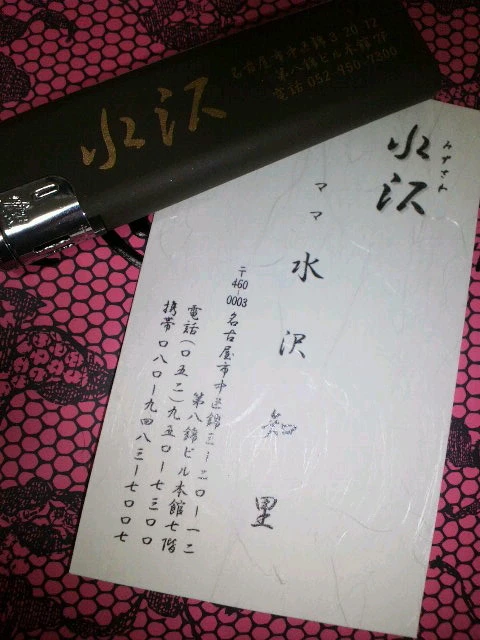 水沢
名古屋市中区錦3-20-12
第八錦ビル本館7F
電話 052-950-7300
水沢
みずさわ
ママ
水沢 知里
〒460-0003 名古屋市中区錦三-二〇-一二
第八錦ビル本館七階
電話(〇五二)九五〇-七三〇〇
携帯〇八〇-九四八三-七〇〇七